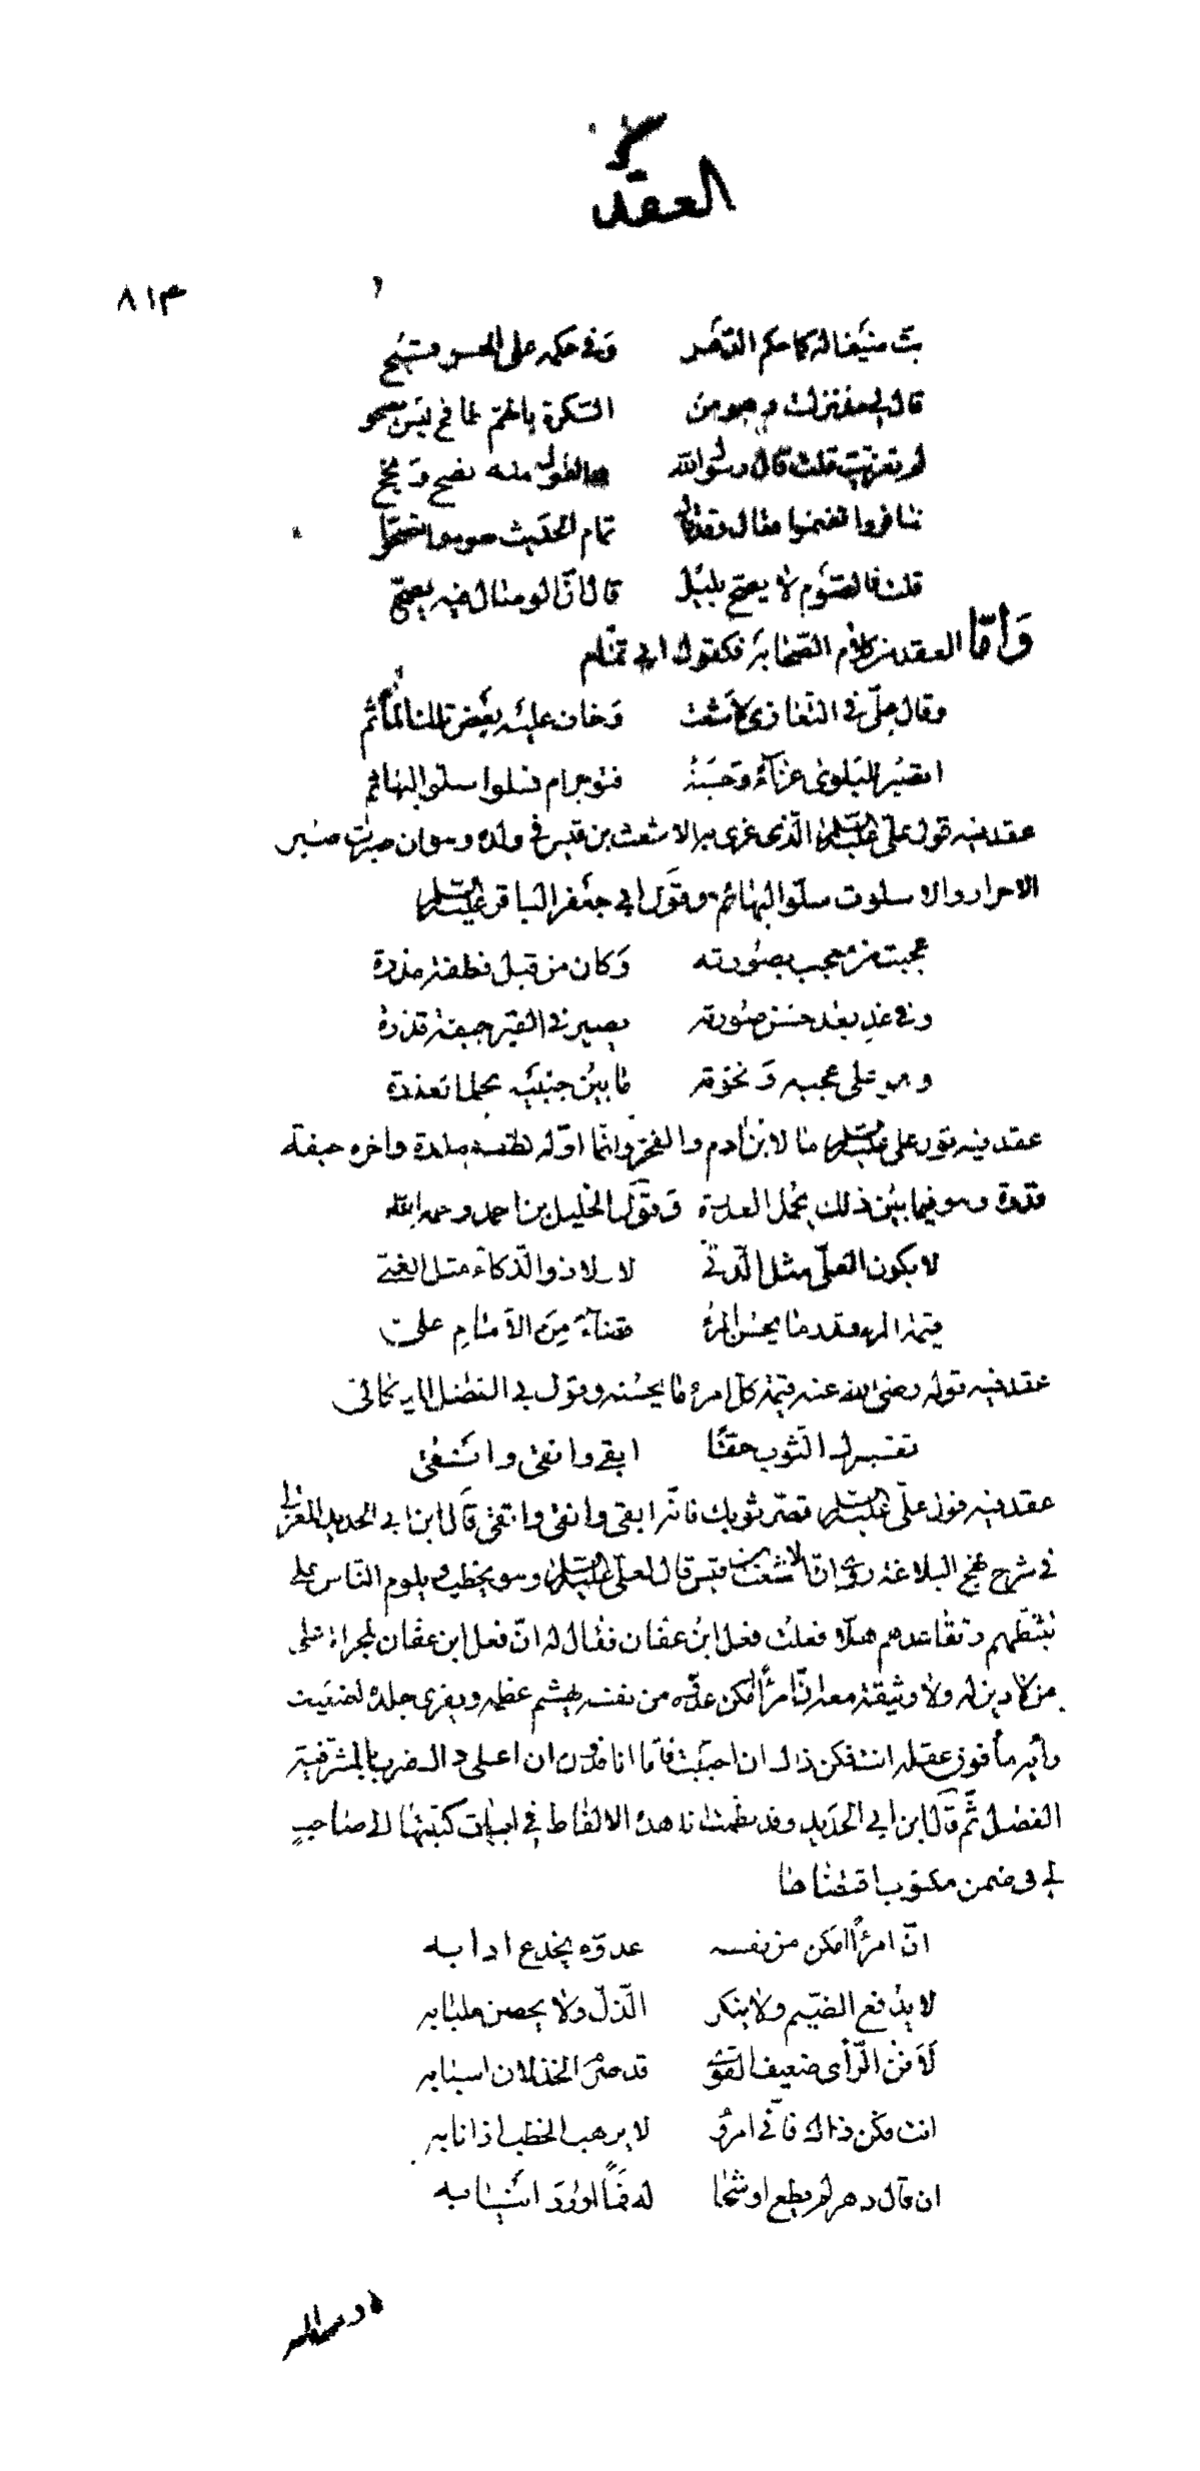 العقد
٨١٣
بت ضيفا له كما حكم الدهر وفي حكمه على الحر قبح
قال لي مذ نزلت وهو من السكرة بالهم طافح ليس يصحو
لم تغربت قلت قال رسول الله والقول منه نصح ونجح
سافروا تغنموا فقال وقد قال تمام الحديث صوموا تصحوا
قلت فالصوم لا يصح بليل قال ان الوصال فيه يصح
وأما العقد من كلام الصحابة فكقول ابي تمام
وقال علي في التعازي لاشعث وخاف عليه بعض تلك المآثم
اتصبر للبلوى عزاء وحسبة فتؤجر ام تسلو سلو البهائم
عقد فيه قول علي عليه السلام الذي عزى به الاشعث بن قيس في ولده وهو ان صبرت صبر
الاحرار والا سلوت سلو البهائم وقول ابي جعفر الباقر عليه السلام
عجبت من معجب بصورته وكان من قبل نطفة مذرة
وفي غد بعد حسن صورته يصير في القبر جيفة قذرة
وهو على عجبه ونخوته ما بين جنبيه يحمل العذرة
عقد فيه قول علي عليه السلام ما لابن آدم والفخر وانما اوله نطفة مذرة واخره جيفة
قذرة وهو فيما بين ذلك يحمل العذرة وقول الخليل بن احمد رحمه الله
لا يكون العلي مثل الدني لا ولا ذو الذكاء مثل الغبي
قيمة المرء قدر ما يحسن المرء قضاء من الامام علي
عقد فيه قوله رضي الله عنه قيمة كل امرئ ما يحسنه وقول بي الفضل الميكالي
تقصيرك الثوب حقا ابقى وانقى واتقى
عقد فيه قول علي عليه السلام قصر ثوبك فانه ابقى وانقى واتقى قال ابن ابي الحديد المعتزلي
في شرح نهج البلاغة روي ان الاشعث بن قيس قال لعلي عليه السلام وهو يخطب ويلوم الناس على
تثبطهم وتقاعدهم هلا فعلت فعل ابن عفان فقال له ان فعل ابن عفان لمخزاة على
من لا دين له ولا وثيقة معه ان امرأ امكن عدوه من نفسه يهشم عظمه ويفري جلده لضعيف
رأيه مأفون عقله انت فكن ذاك ان احببت فاما انا فدون ان اعطى ذاك ضرب بالمشرفية
الفصل ثم قال ابن ابي الحديد وقد نظمت انا هذه الالفاظ في ابيات كتبتها الى صاحب
لي في ضمن مكتوب اقتضاها
ان امرأ امكن من نفسه عدوه يخدع آرابه
لا يدفع الضيم ولا ينكر الذل ولا يحصن جلبابه
لفائل الرأي ضعيف القوى قد صرم الخذلان اسبابه
انت فكن ذاك فاني امرؤ لا يرهب الخطب اذا نابه
ان قال دهر لم يطع او شحا له فما ادرد انيابه